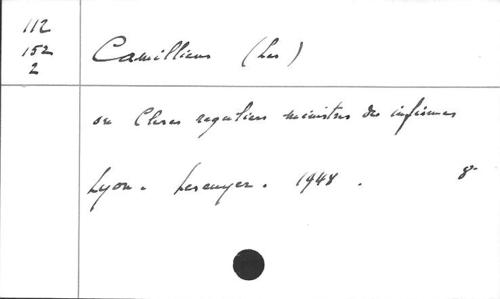 112
152
2
Camilliens (Les)
ou Clercs reguliers ministres des infirmes
Lyon. Lescuyer. 1948. 8°